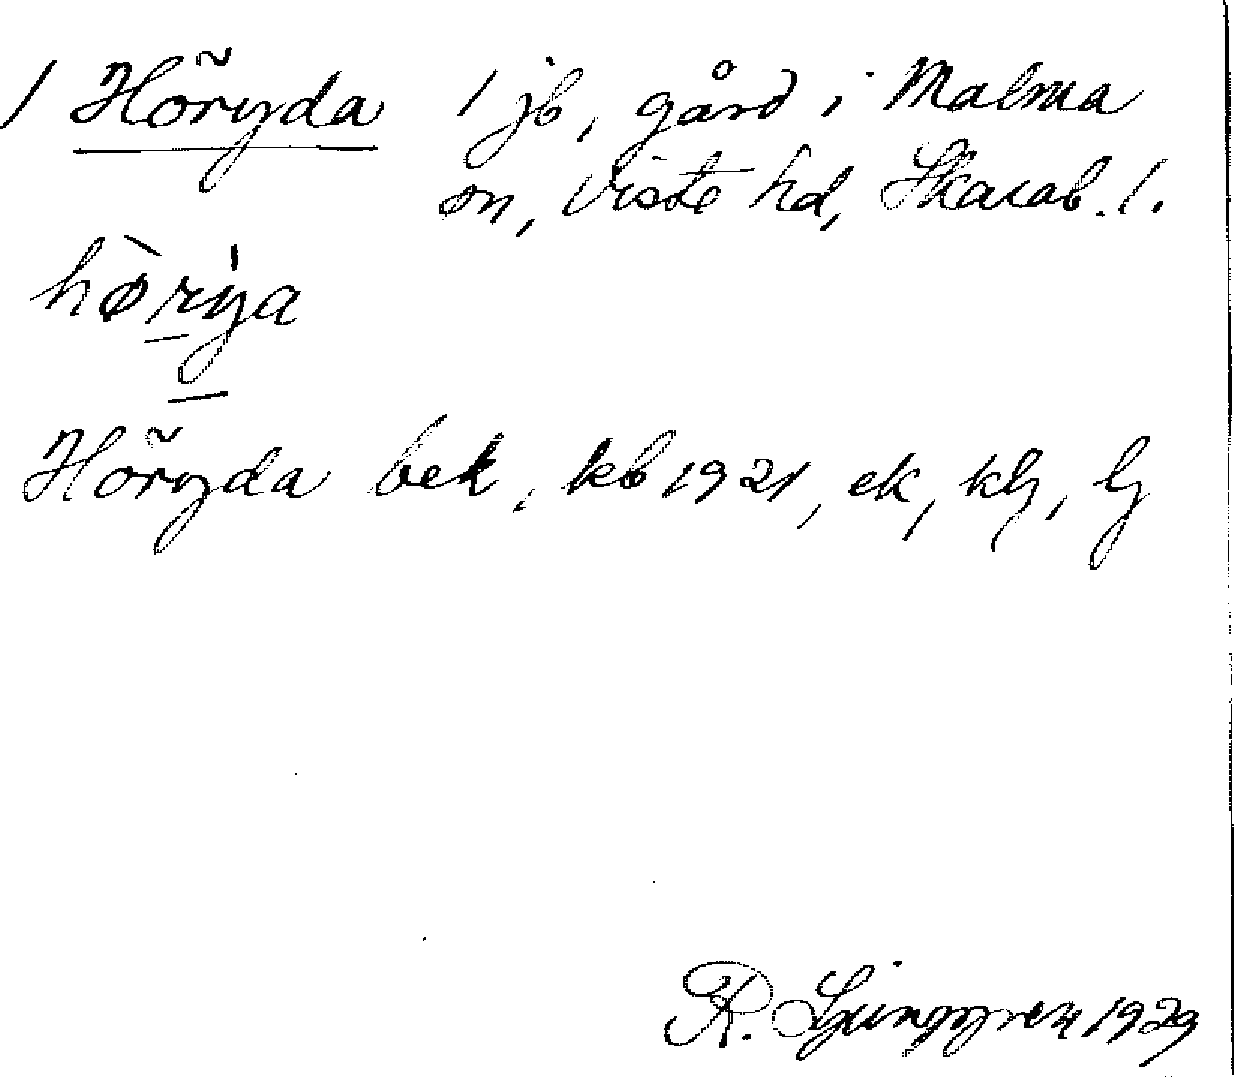 / Höryda / jb, gård i Malma
sn, Viste hd, Skarab. l.
hø̀rýa
Höryda bek, kb 1921, ek, klj, lj
R. Ljunggren 1929